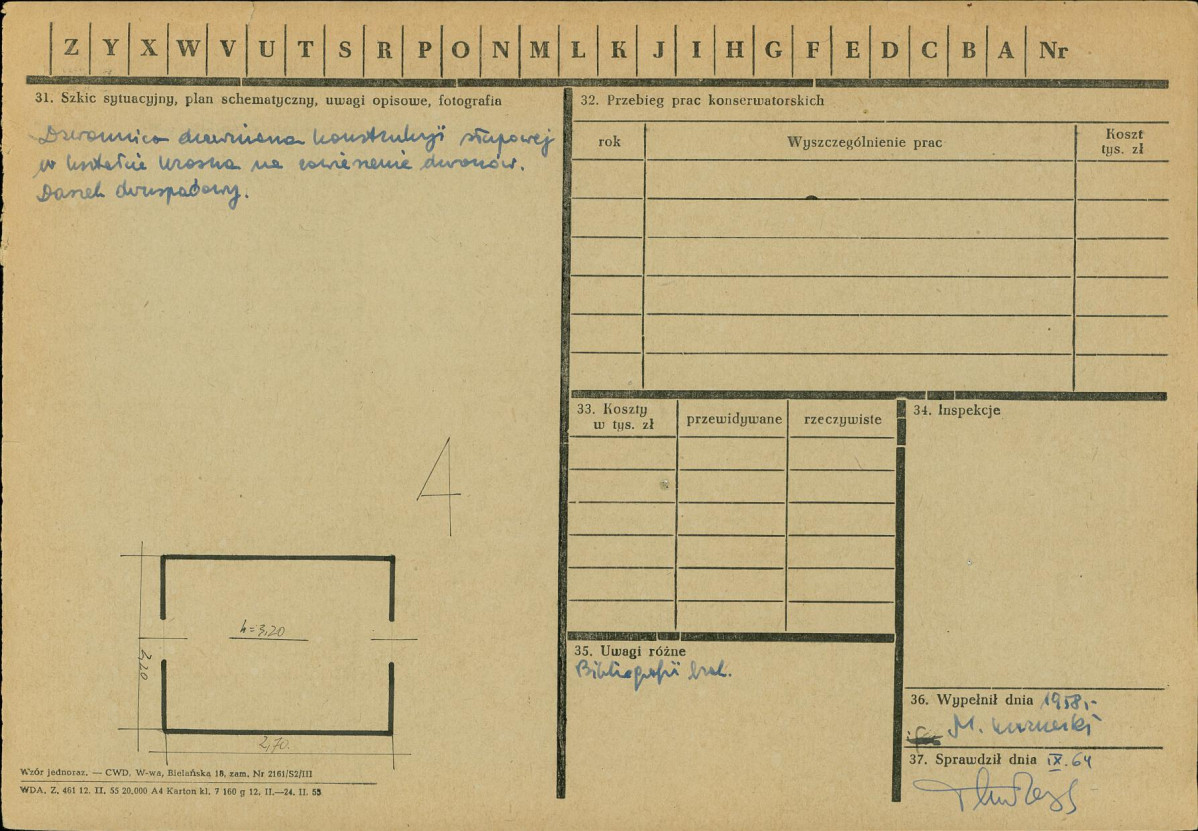 Z Y X W V U T S R P O N M L K J I H G F E D C B A Nr
31. Szkic sytuacyjny, plan schematyczny, uwagi opisowe, fotografia
Dzwonnica drewniana konstrukcji słupowej
w kształcie kroska na zawieszenie dzwonów.
Daszek dwuspadowy.
h=3,20
3,20
2,70.
Wzór jednoraz. — CWD. W-wa, Bielańska 18, zam. Nr 2161/S2/III
WDA. Z. 461 12. II. 55 20.000 A4 Karton kl. 7 160 g 12. II.—24. II. 55
32. Przebieg prac konserwatorskich
rok Wyszczególnienie prac Koszt
tys. zł
33. Koszty
w tys. zł
przewidywane rzeczywiste
34. Inspekcje
35. Uwagi różne
Bibliografii brak.
36. Wypełnił dnia 1958,-
M.
37. Sprawdził dnia IX.64